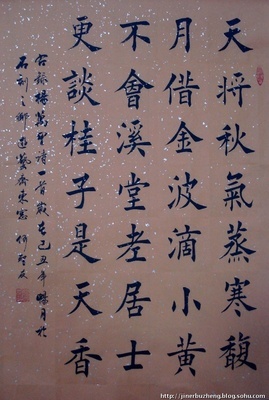 天將秋氣蒸寒馥
月借金波滴小黃
不會溪堂老居士
更談桂子是天香
錄楊萬里詩一首歲在己丑年暢月於
石刻之鄉遊藝齋東窗
http://jinerbuzheng.blog.sohu.com/